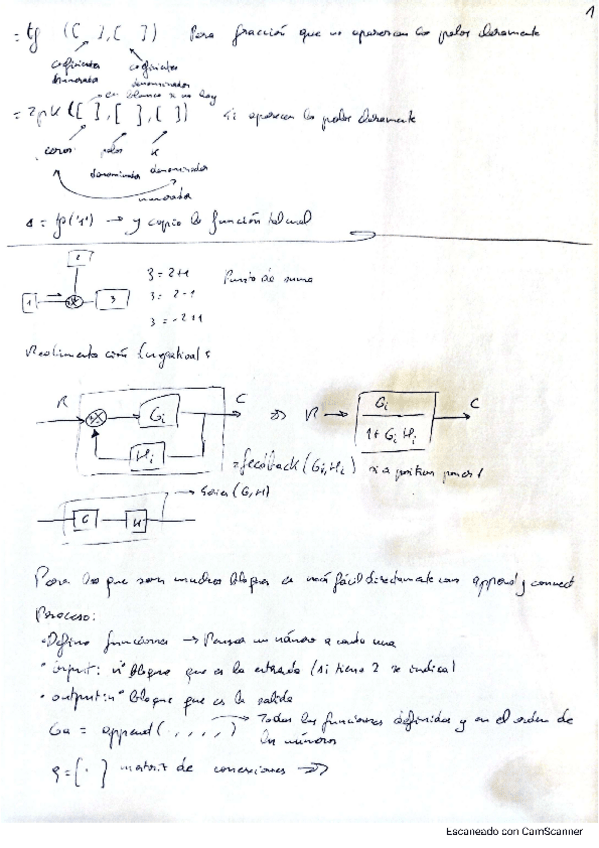 1
= tf ([ ],[ ]) Para fracción que no aparezcan los polos claramente
coeficientes numerador
coeficientes denominador
en blanco si no hay
= zpk ([ ],[ ],[ ]) si aparecen los polos claramente
ceros polos k
denominador denominador
numerador
s = tf('s') → y copio la función tal cual
2
1 3
3 = 2+1 Punto de suma
3 = 2-1
3 = -2+1
Realimentación (negativa):
R Gi C ⇒ R → Gi C
Hi 1+ Gi Hi
= feedback (Gi, Hi) si es positiva pones 1
→ series (G,H)
G H
Para los que son muchos bloques es más fácil directamente con append y connect
Proceso:
• Defino funciones → Pensar un número a cada una
• input: nº bloque que es la entrada (si tiene 2 se indica)
• output: nº bloque que es la salida
Ga = append( , , , , ) → Todas las funciones definidas y en el orden de los números
q = [ · ] matriz de conexiones
Escaneado con CamScanner